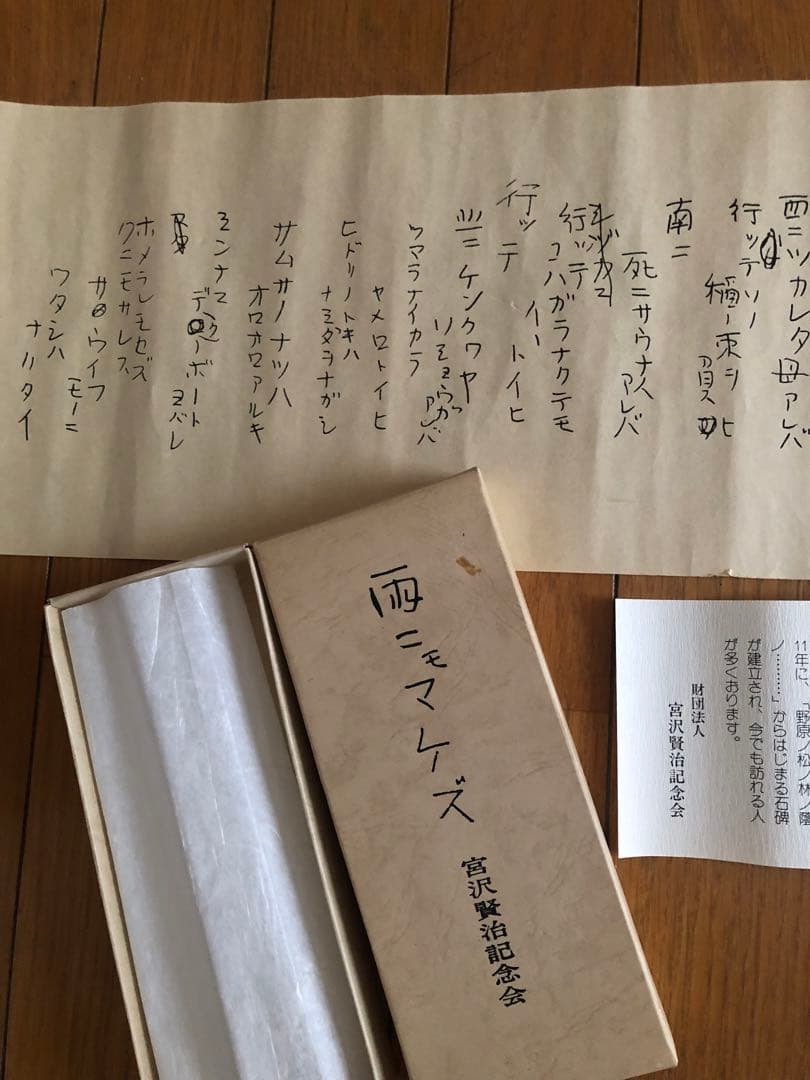 西ニツカレタ母アレバ
行ッテソノ
稲ノ束ヲ
負ヒ
南ニ
死ニサウナ人
アレバ
行ッテ
コハガラナクテモ
イヽ
トイヒ
行ッテ
北ニケンクヮヤ
ソショウガ
アレバ
ツマラナイカラ
ヤメロトイヒ
ヒドリノトキハ
ナミダヲナガシ
サムサノナツハ
オロオロアルキ
ミンナニ
デクノボート
ヨバレ
ホメラレモセズ
クニモサレズ
サウイフ
モノニ
ワタシハ
ナリタイ
雨ニモマケズ
宮沢賢治記念会
11年に、「野原ノ松ノ林ノ蔭
ノ…………」からはじまる石碑
が建立され、今でも訪れる人
が多くおります。
財団法人
宮沢賢治記念会